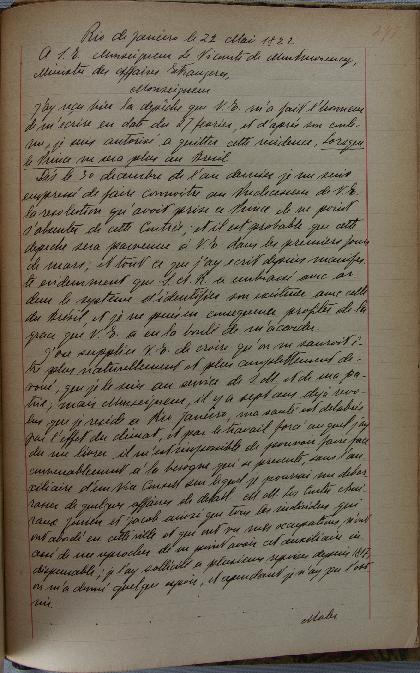 Rio de Janeiro le 22 Mai 1822
A S. E. Monseigneur le Vicomte de Montmorency,
Ministre des Affaires Etrangeres,
Monseigneur
J'ay reçu hier la depêche que V. E. m'a fait l'honneur
de m'ecrire en date du 27 fevrier, et d'après son conte-
nu, je suis autorisé a quitter cette residence, lorsque
le Prince ne sera plus au Bresil
Dès le 30 decembre de l'an dernier je me suis
empressé de faire connoitre au Predecesseur de V. E.
la resolution qu'avoit prise ce Prince de ne point
s'absenter de cette Contrée; et il est probable que cette
depeche sera parvenue à V. E. dans les premiers jours
de mars, et tout ce que j'ay ecrit depuis manifes-
te evidemment que S. A. R. a embrassé avec ar
deur le systeme d'identifier son existence avec celle
du Bresil et je ne puis en consequence profiter de la
grace que V. E. a eu la bonté de m'accorder.
J'ose supplier V. E. de croire qu'on ne sauroit e-
tre plus naturellement et plus complettement de-
voué, que je le suis au service de S. M. et de ma pa-
trie; mais Monseigneur, il y a sept ans deja revo-
lus que je reside a Rio Janeiro, ma santé est delabrée
par l'effet du climat, et par le travail forcé auquel j'ay
du me livrer, il m'est impossible de pouvoir faire face
convenablement à la besogne qui se presente, sans l'au
xiliaire d'un Vice Consul sur lequel je pourrai me debar
rasser de quelques affaires de detail et les Contre Ami-
raux Jurieu et Jacob ainsi que tous les individus qui
ont abordé en cette ville et qui ont vu mes occupations, m'ont
assi de me reprocher de ne point avoir cet auxiliaire in-
dispensable; je l'ay sollicité a plusieurs reprises depuis 1817,
on m'a donné quelque espoir, et cependant je n'ay pu l'obt
nir.
Maler